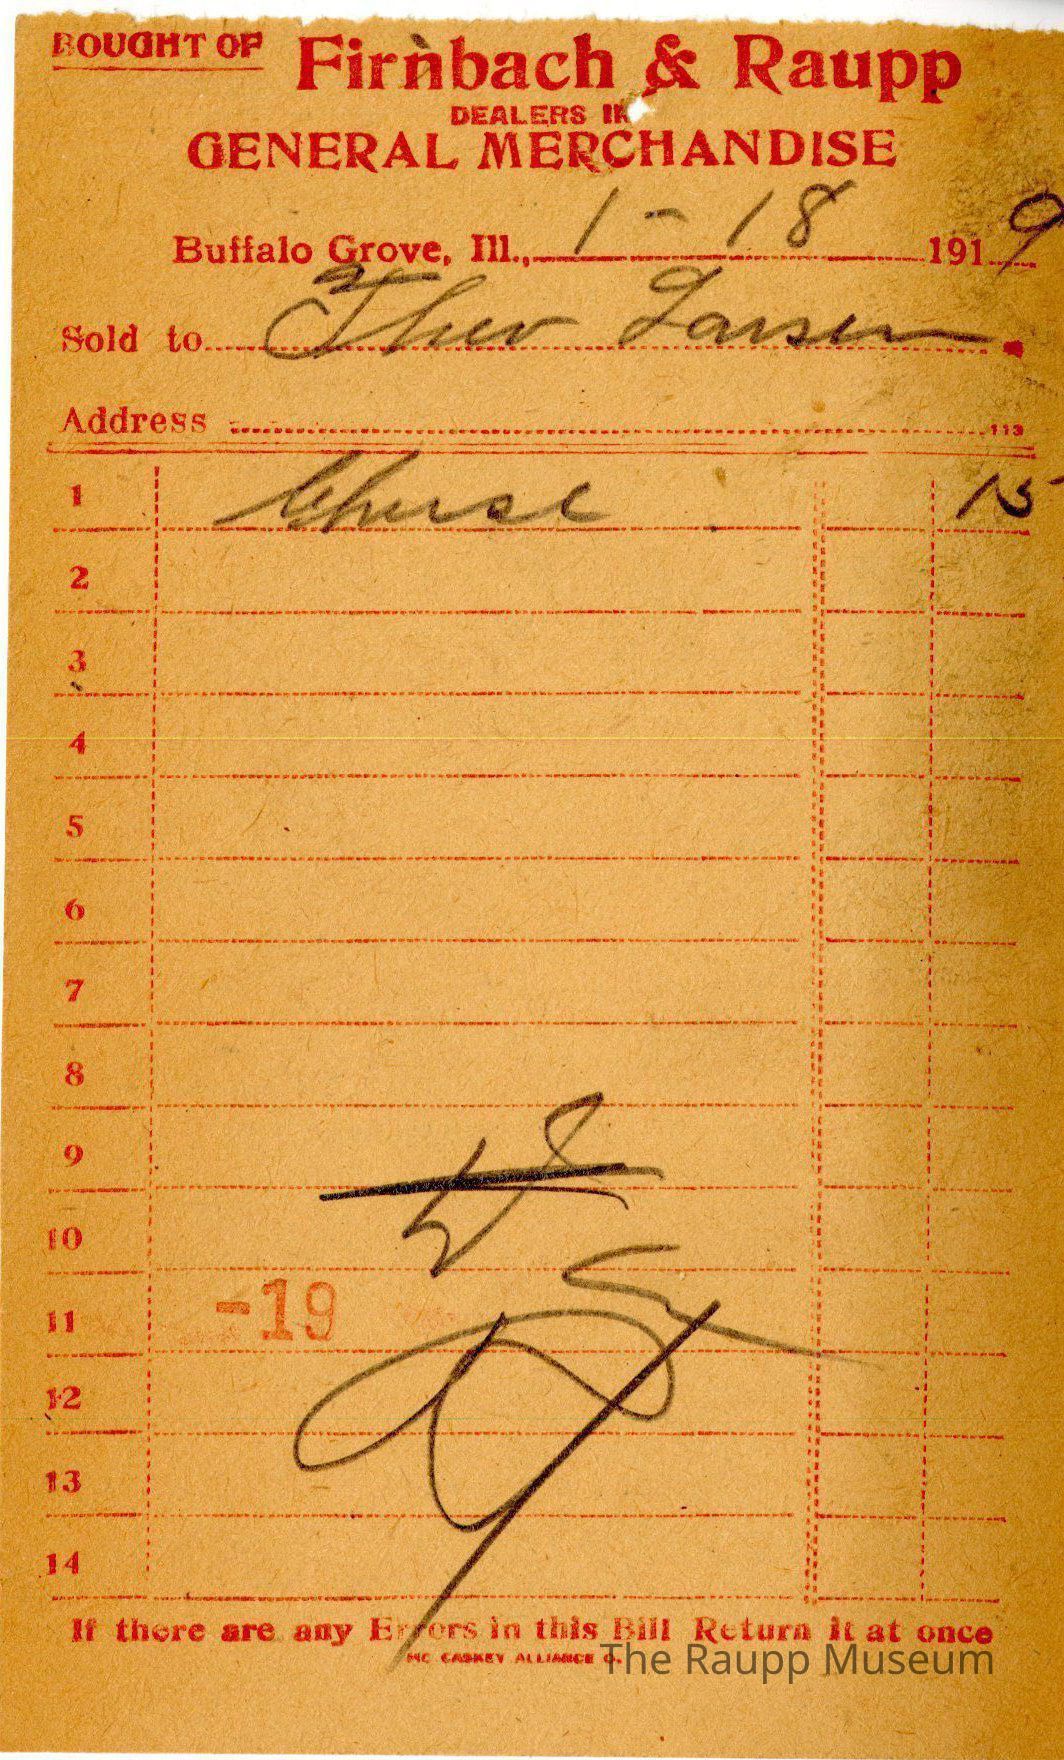 BOUGHT OF Firnbach & Raupp
DEALERS IN
GENERAL MERCHANDISE
Buffalo Grove, Ill., 1 - 18 1919
Sold to Theo Larsen
Address 113
1 15
2
3
4
5
6
7
8
9
10
11 -19
12
13
14
If there are any Errors in this Bill Return it at once
MC CASKEY ALLIANCE O.
The Raupp Museum